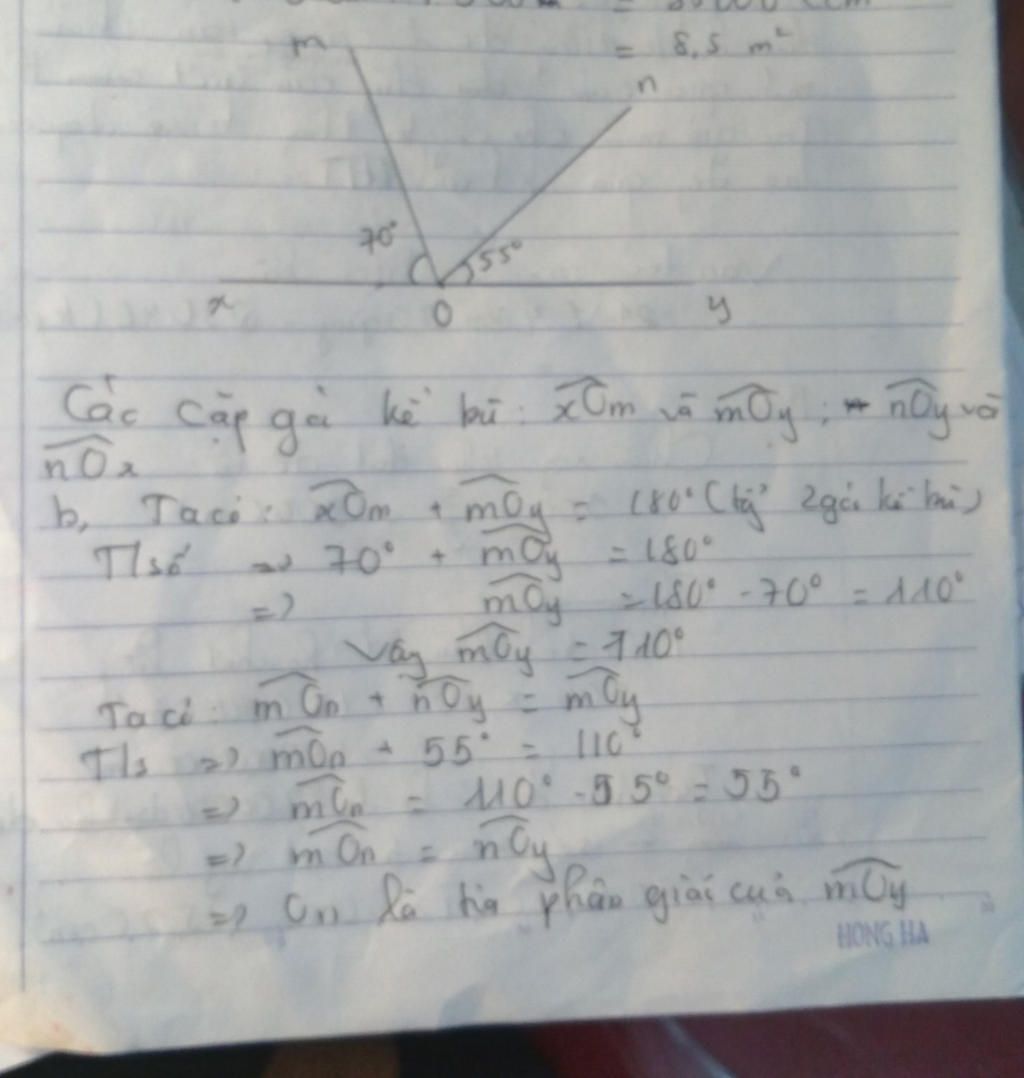 = 8,5 m²
m
n
70°
55°
x
O
y
Các cặp góc kề bù: xOm và mOy; nOy và
nOx
b, Ta có: xOm + mOy = 180° (tg 2 góc kề bù)
T/số => 70° + mOy = 180°
=> mOy = 180° - 70° = 110°
Vậy mOy = 110°
Ta có: mOn + nOy = mOy
T/s => mOn + 55° = 110°
=> mOn = 110° - 55° = 55°
=> mOn = nOy
=> On là tia phân giác của mOy
HONG HA